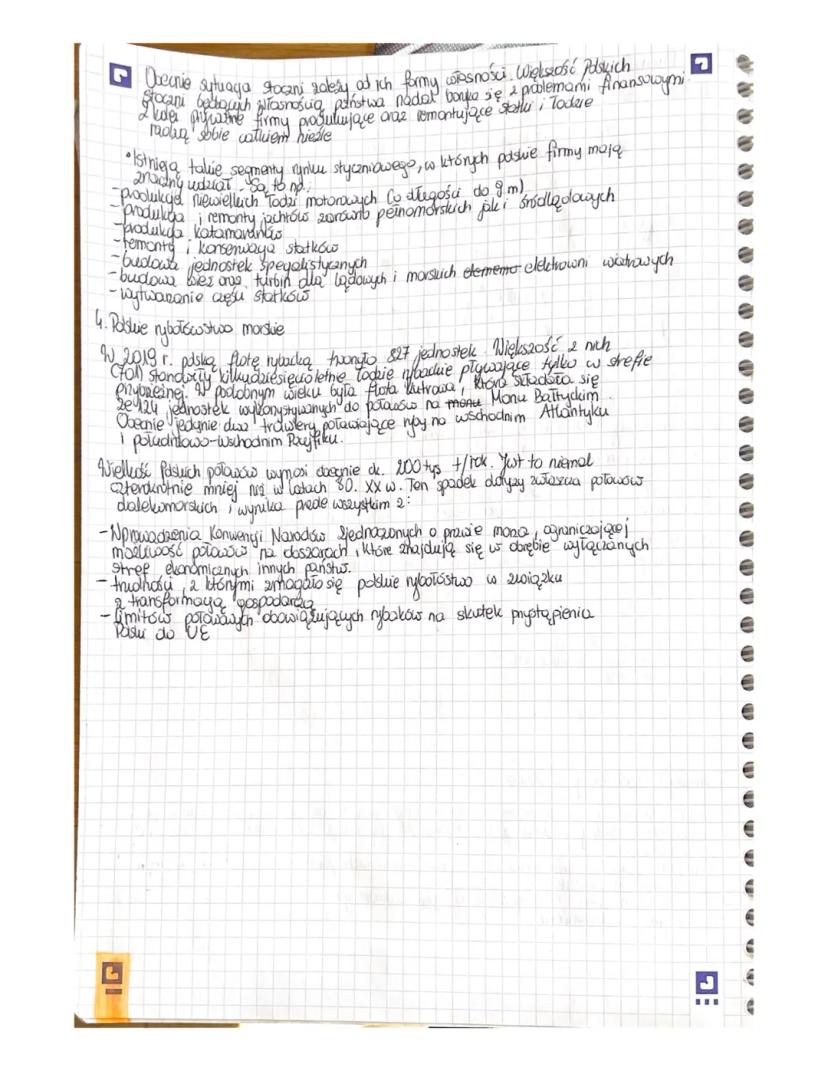 Obecnie sytuacja stoczni zależy od ich formy własności. Większość Polskich
stoczni będących własnością państwa nadal boryka się z problemami finansowymi.
Z kolei prywatne firmy produkujące oraz remontujące statki i łodzie
radzą sobie całkiem nieźle
•Istnieją takie segmenty rynku styczniowego, w których polskie firmy mają
znaczny udział. Są to np.:
-produkcja niewielkich łodzi motorowych (o długości do 9 m)
-produkcja i remonty jachtów zarówno pełnomorskich jak i śródlądowych
-produkcja katamaranów
-remonty i konserwacja statków
-budowa jednostek specjalistycznych
-budowa wież oraz turbin dla lądowych i morskich elektrowni wiatrowych
-wytwarzanie części statków
4. Polskie rybołówstwo morskie
W 2019 r. polską flotę rybacką tworzyło 827 jednostek. Większość z nich
(701) stanowiły kilkudziesięcioletnie łodzie rybackie pływające tylko w strefie
przybrzeżnej. W podobnym wieku była flota kutrowa, która składała się
ze 124 jednostek wykorzystywanych do połowów na morzu Morzu Bałtyckim.
Obecnie jedynie dwa trawlery poławiające ryby na wschodnim Atlantyku
i południowo-wschodnim Pacyfiku.
Wielkość Polskich połowów wynosi obecnie ok. 200 tys t/rok. Jest to niemal
czterokrotnie mniej niż w latach 80. XX w. Ten spadek dotyczy zwłaszcza połowów
dalekomorskich i wynika przede wszystkim z:
-Wprowadzenia Konwencji Narodów Zjednoczonych o prawie morza, ograniczającej
możliwość połowów na obszarach, które znajdują się w obrębie wyłącznych
stref ekonomicznych innych państw.
- trudności, z którymi zmagało się polskie rybołóstwo w związku
z transformacją gospodarczą
-limitów połowowych obowiązujących rybaków na skutek przystąpienia
Polski do UE